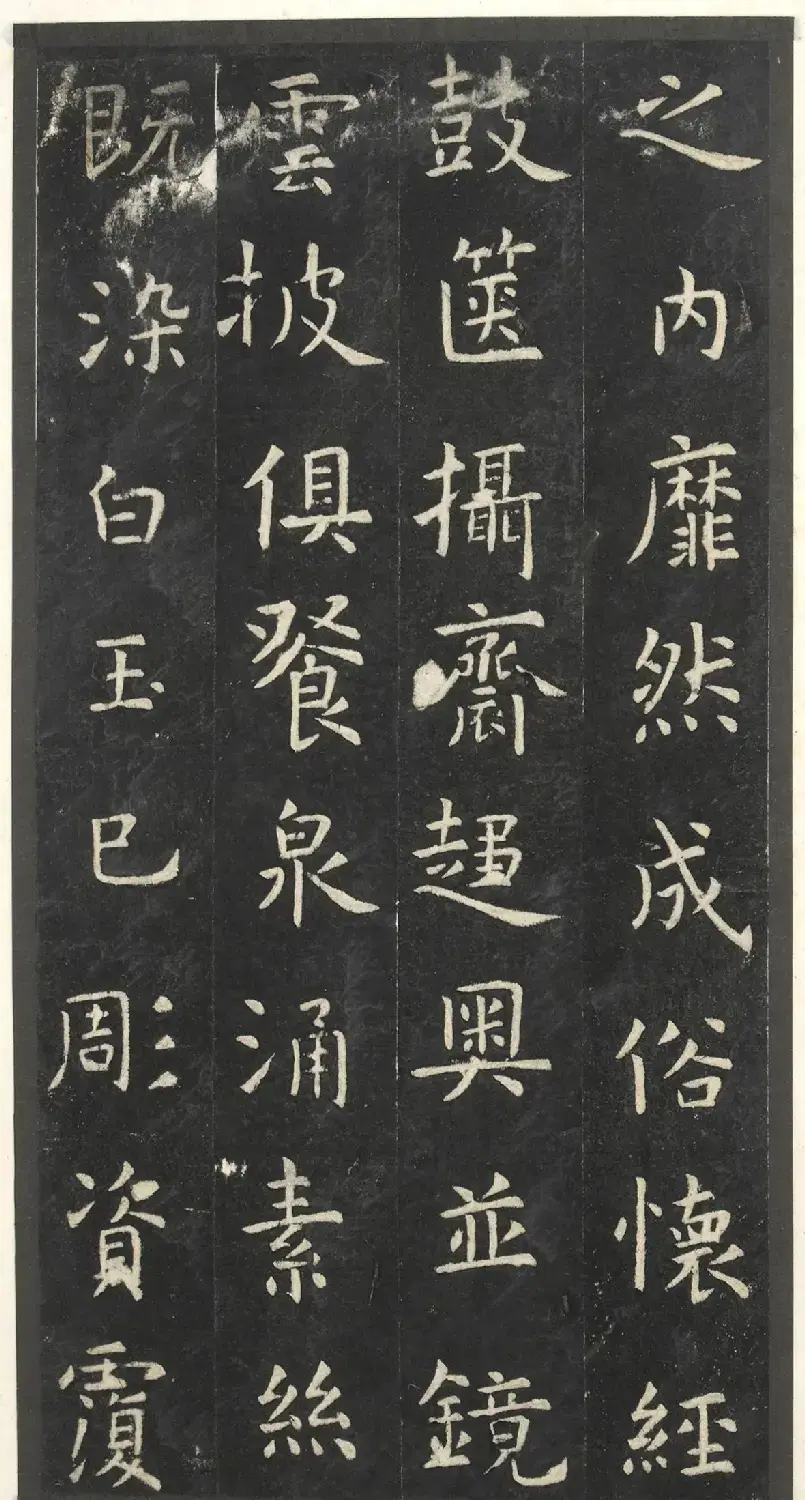 之内靡然成俗懷經
鼓篋攝齋趨奥並鏡
雲披俱餐泉涌素絲
既染白玉已彫資覆